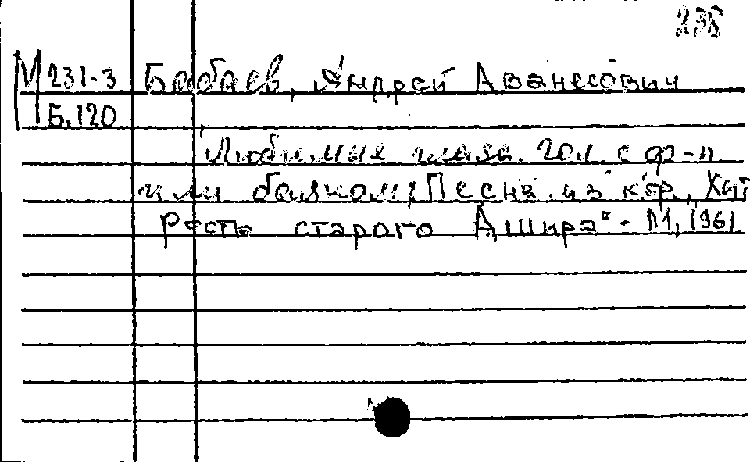 235
М 231-3 Бабаев, Андрей Аванесович
Б.120
Любимые глаза. Гол. с ф-п
или баяном; Песня из к.ф. „Хит
рость старого Ашира“ - М, 1961